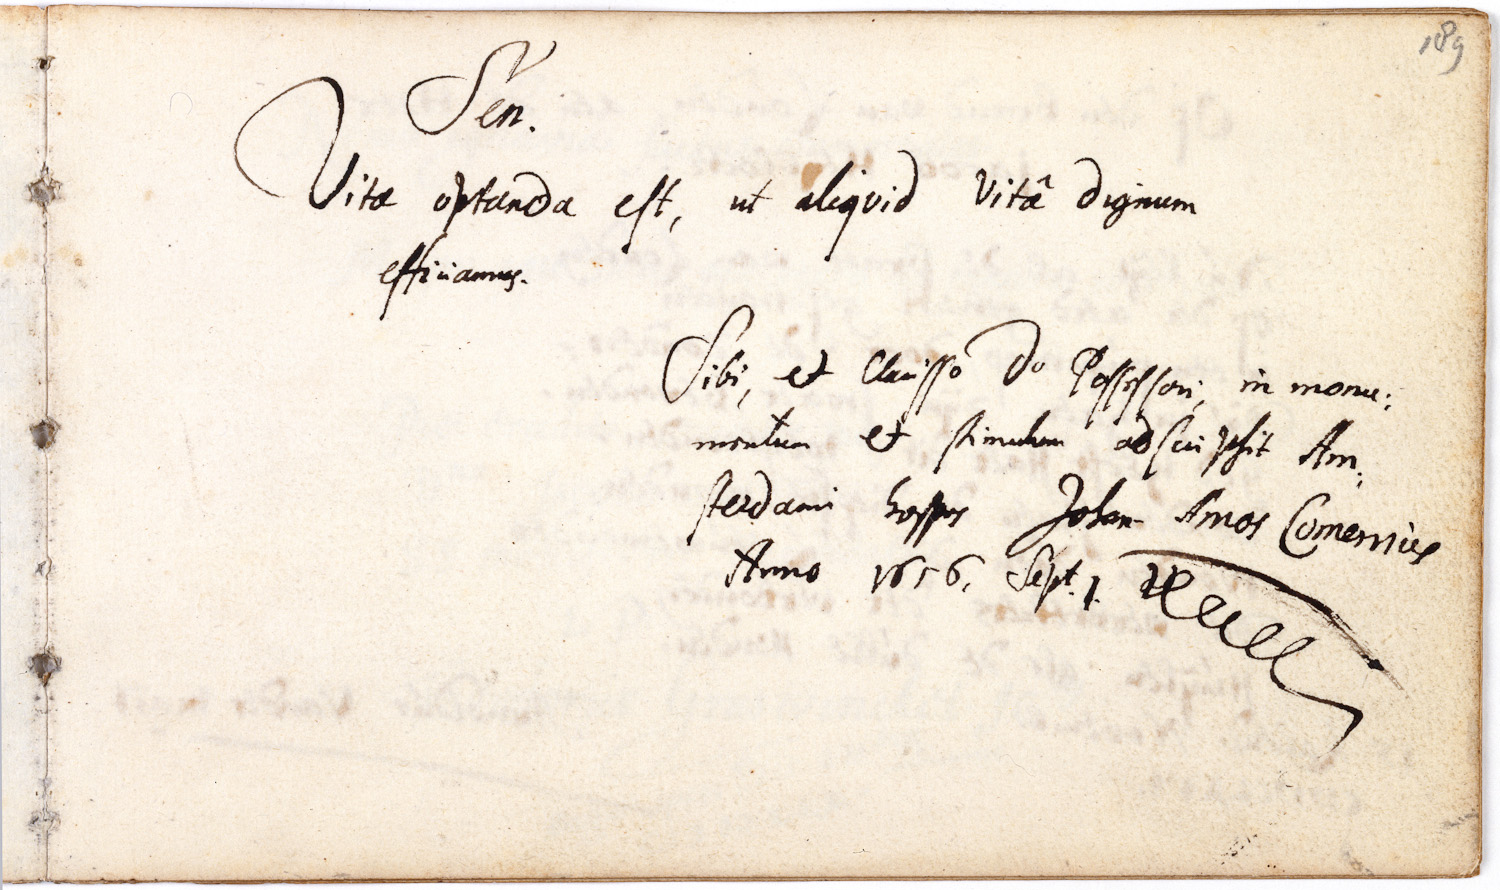 189
Sen.
Vita optanda est, ut aliquid Vitâ dignum
efficiamus.
Sibi, et Clarisso Do Possessori, in monu:
mentum et stimulum adscripsit Am,
sterdami hospes Johan Amos Comenius
Anno 1656. Sept. 1.